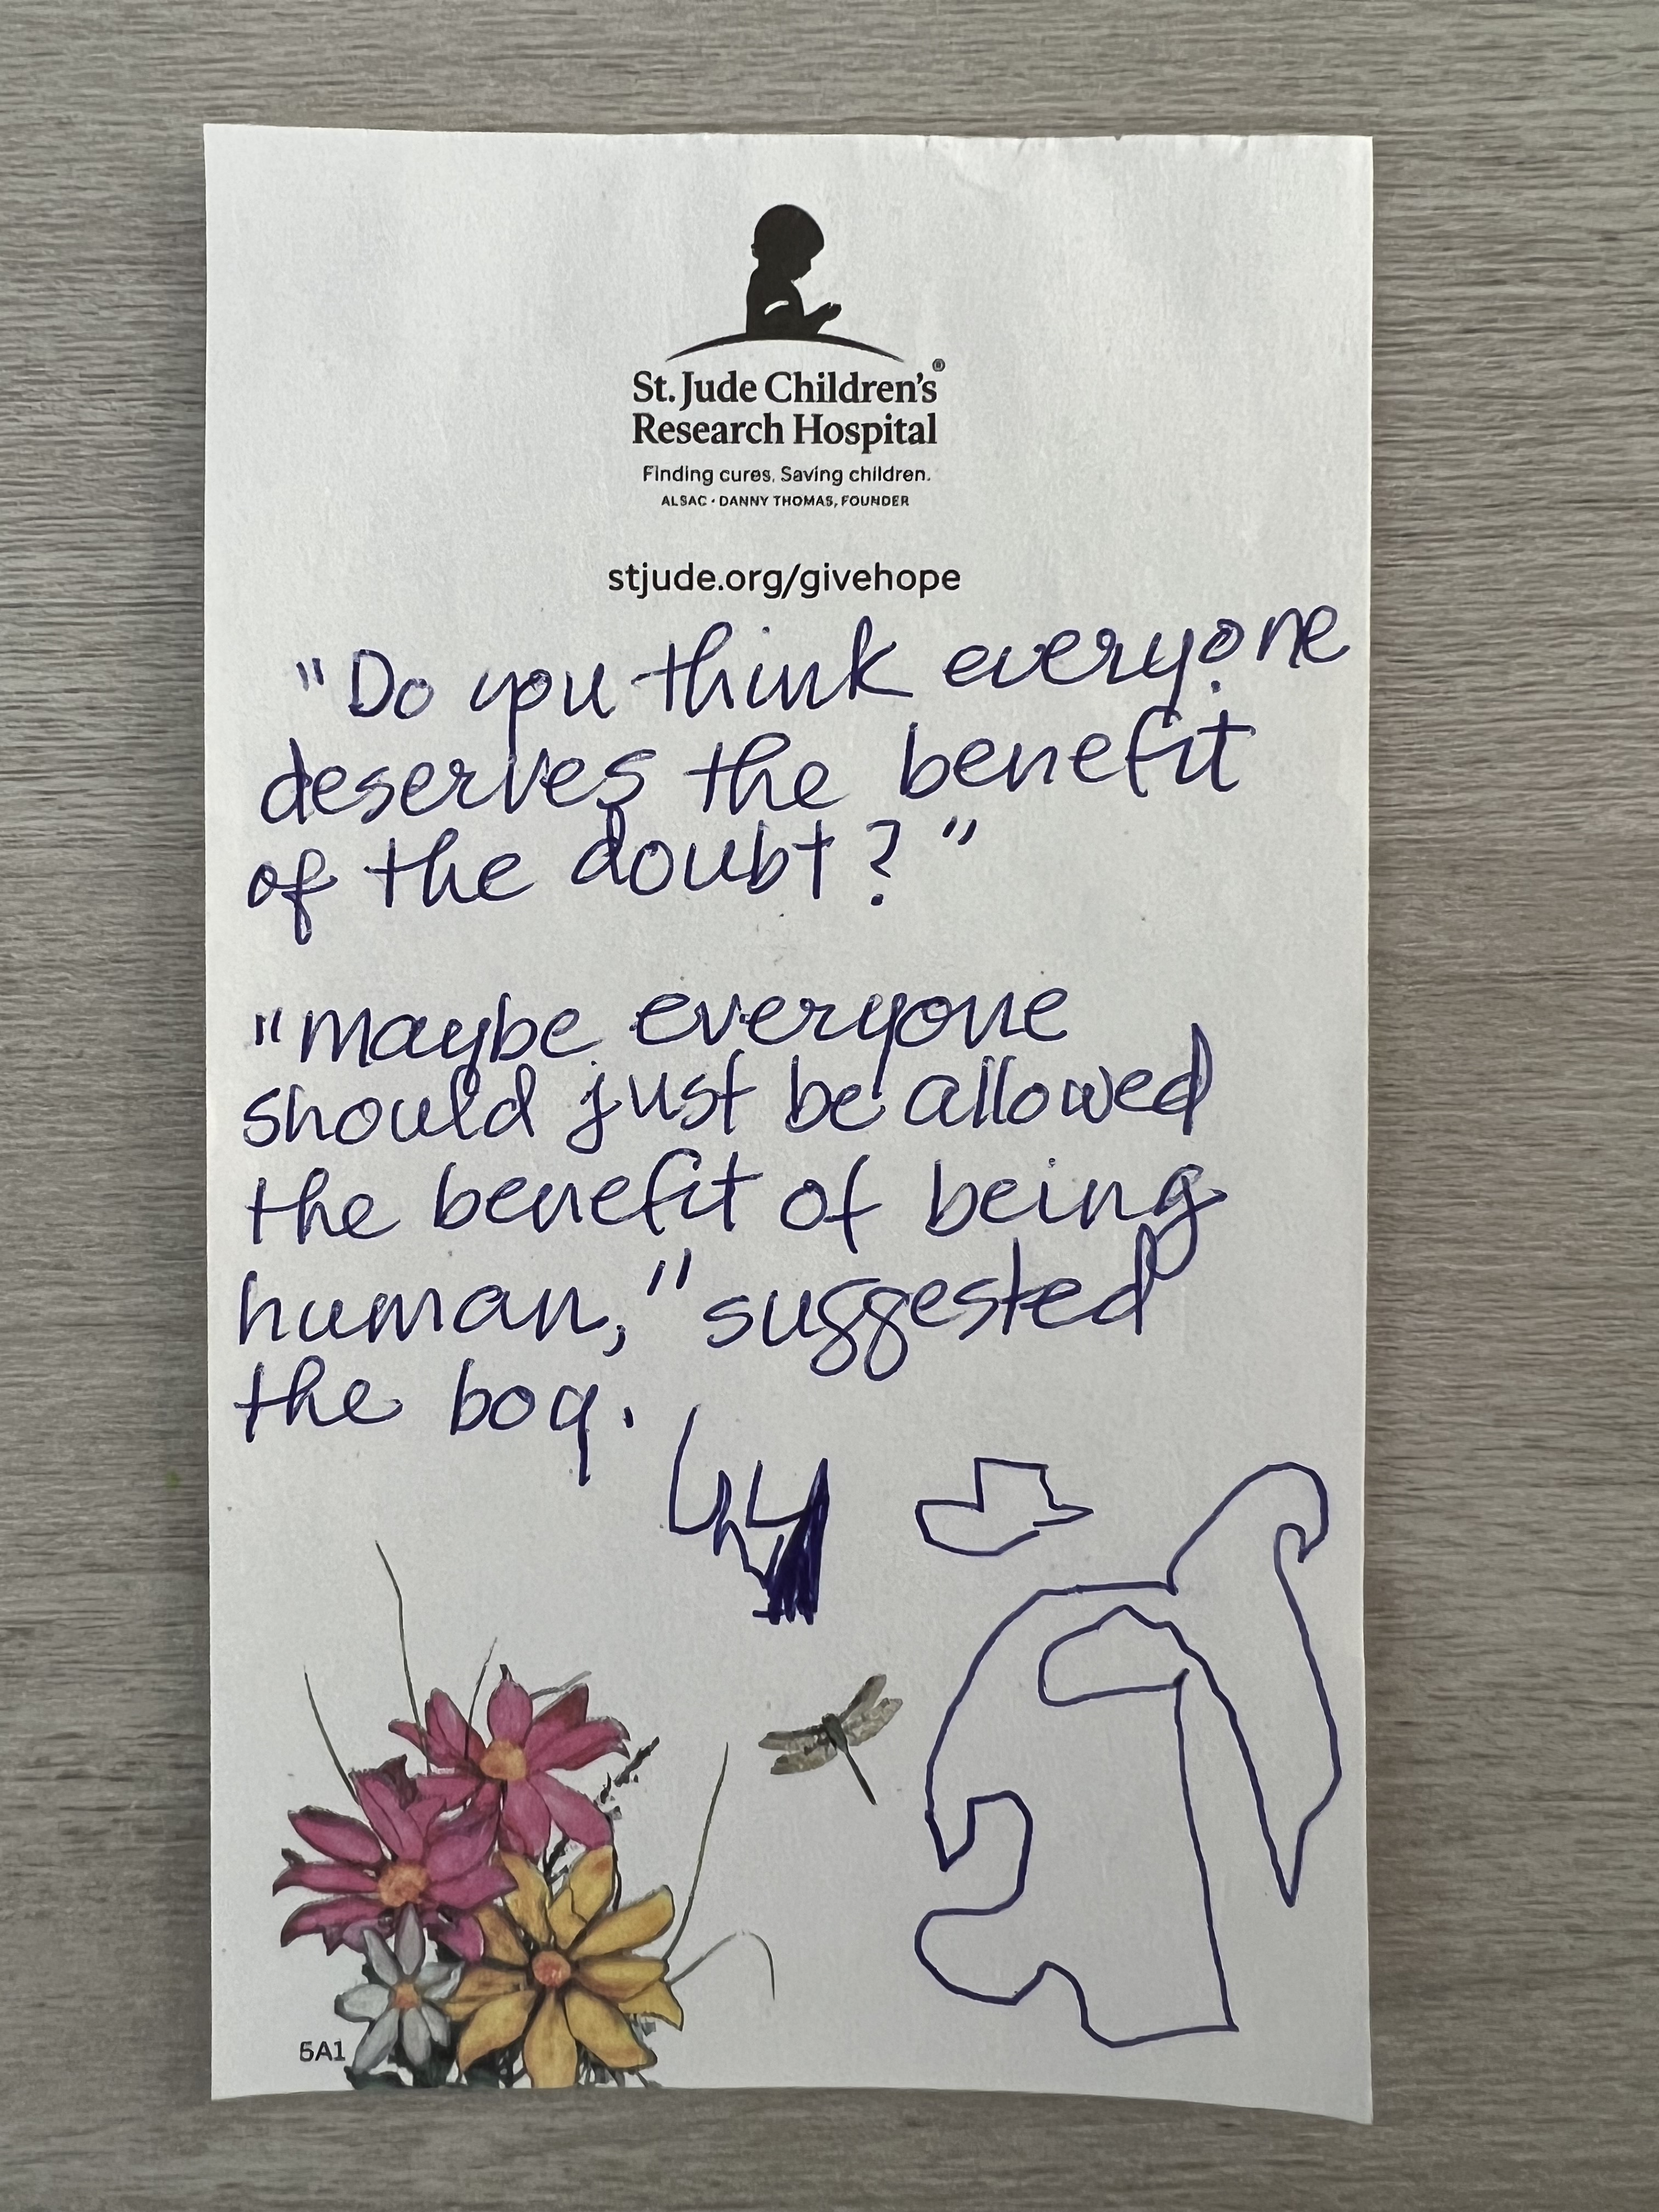 St. Jude Children's®
Research Hospital
Finding cures. Saving children.
ALSAC • DANNY THOMAS, FOUNDER
stjude.org/givehope
"Do you think everyone
deserves the benefit
of the doubt?"
"Maybe everyone
should just be allowed
the benefit of being
human," suggested
the boq.
5A1